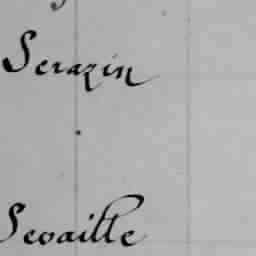 Serazin
Sevaille